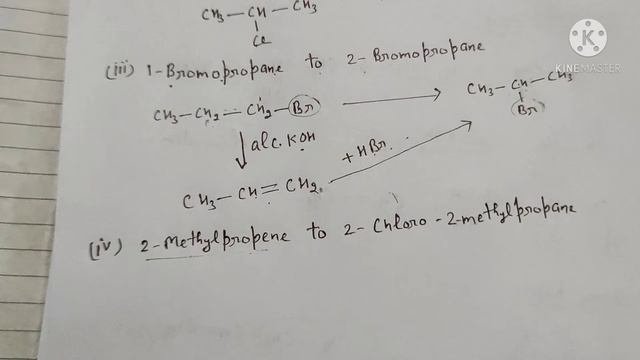 CH3-CH-CH3
Cl
(iii) 1-Bromopropane to 2-Bromopropane
CH3-CH2-CH2-Br → CH3-CH-CH3
Br
alc.KOH
+HBr
CH3-CH=CH2
(iv) 2-Methylpropene to 2-Chloro-2-methylpropane
K
KINEMASTER